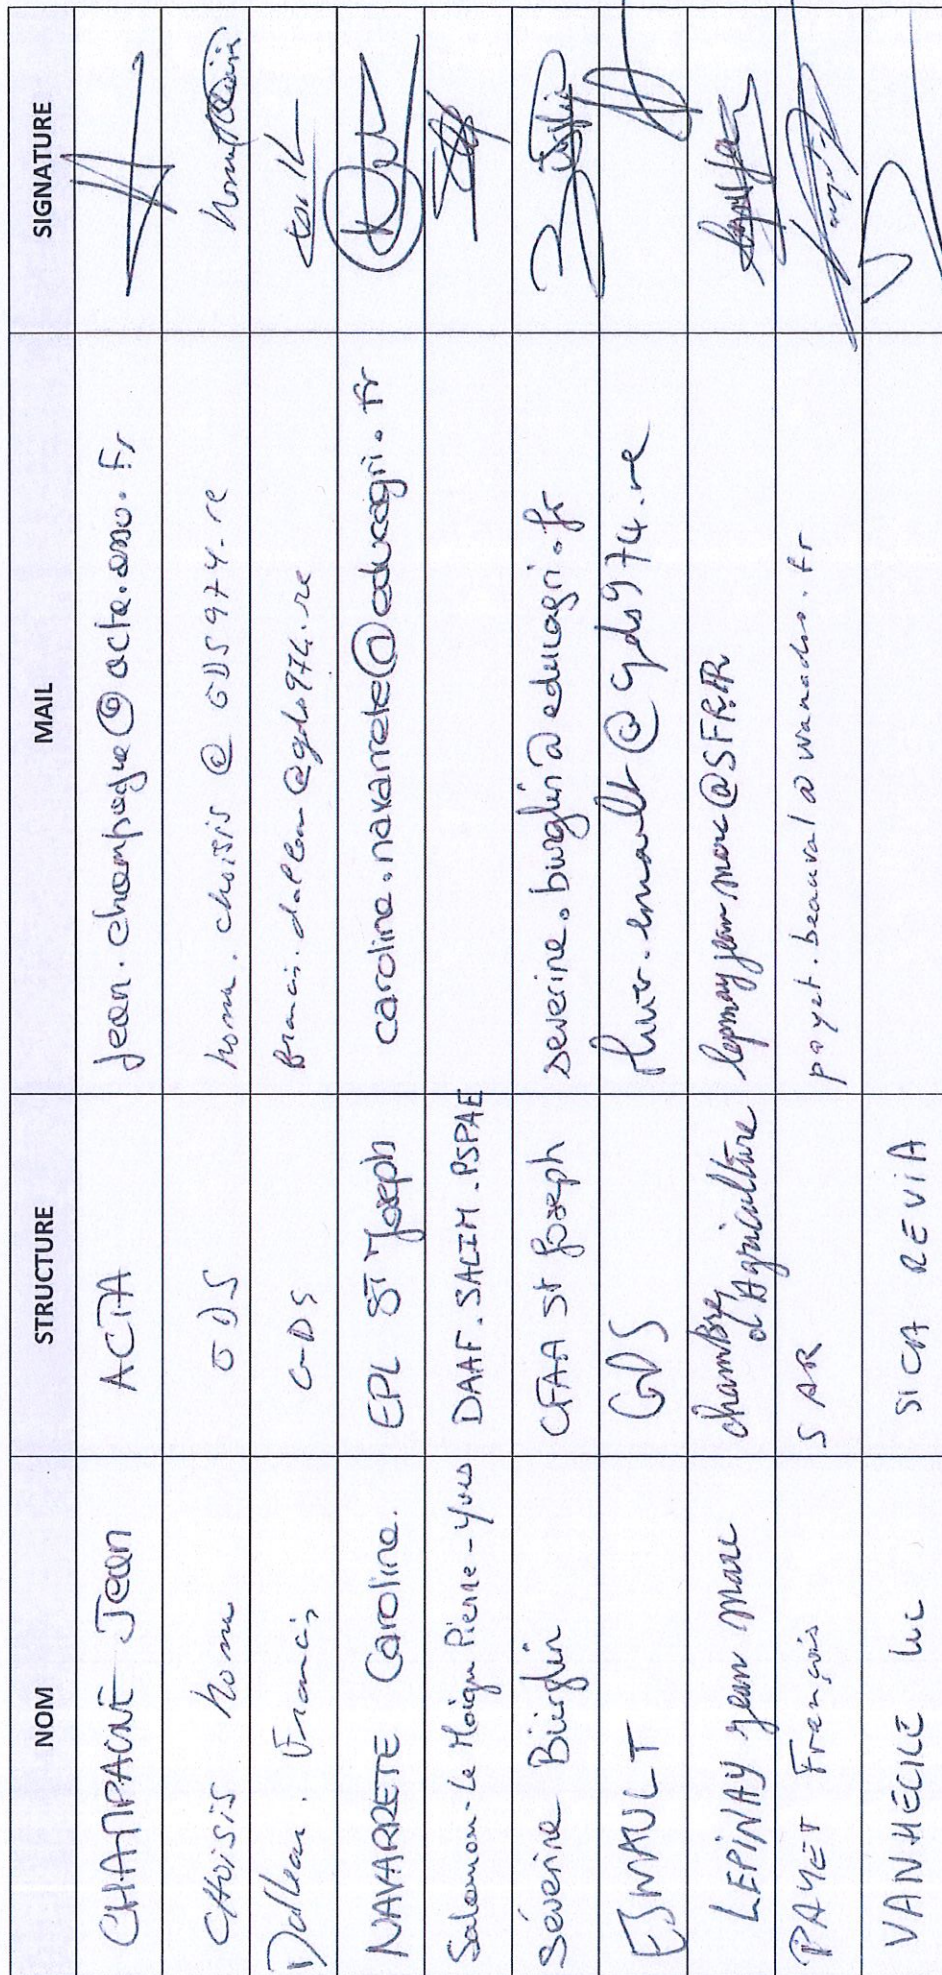 NOM STRUCTURE MAIL SIGNATURE
CHAMPAGNE Jean ACTA jean.champagne@acta.asso.fr
CHOISIS GDS @ GDS974.re
Dalleau Francis GDS francis.dalleau@gds974.re
NAVARRETE Caroline. EPL St Joseph caroline.navarrete@educagri.fr
Salomon-Le Moigne Pierre-Yves DAAF.SALIM.PSPAE
Séverine Bürglin CFAA St Joseph severine.burglin@educagri.fr
ESNAULT GDS @gds974.re
LEPINAY jean marc chambre d'Agriculture lepinayjeanmarc@SFR.FR
PAYET François SAR payet.beauval@wanadoo.fr
VANHECILE luc SICA REVIA